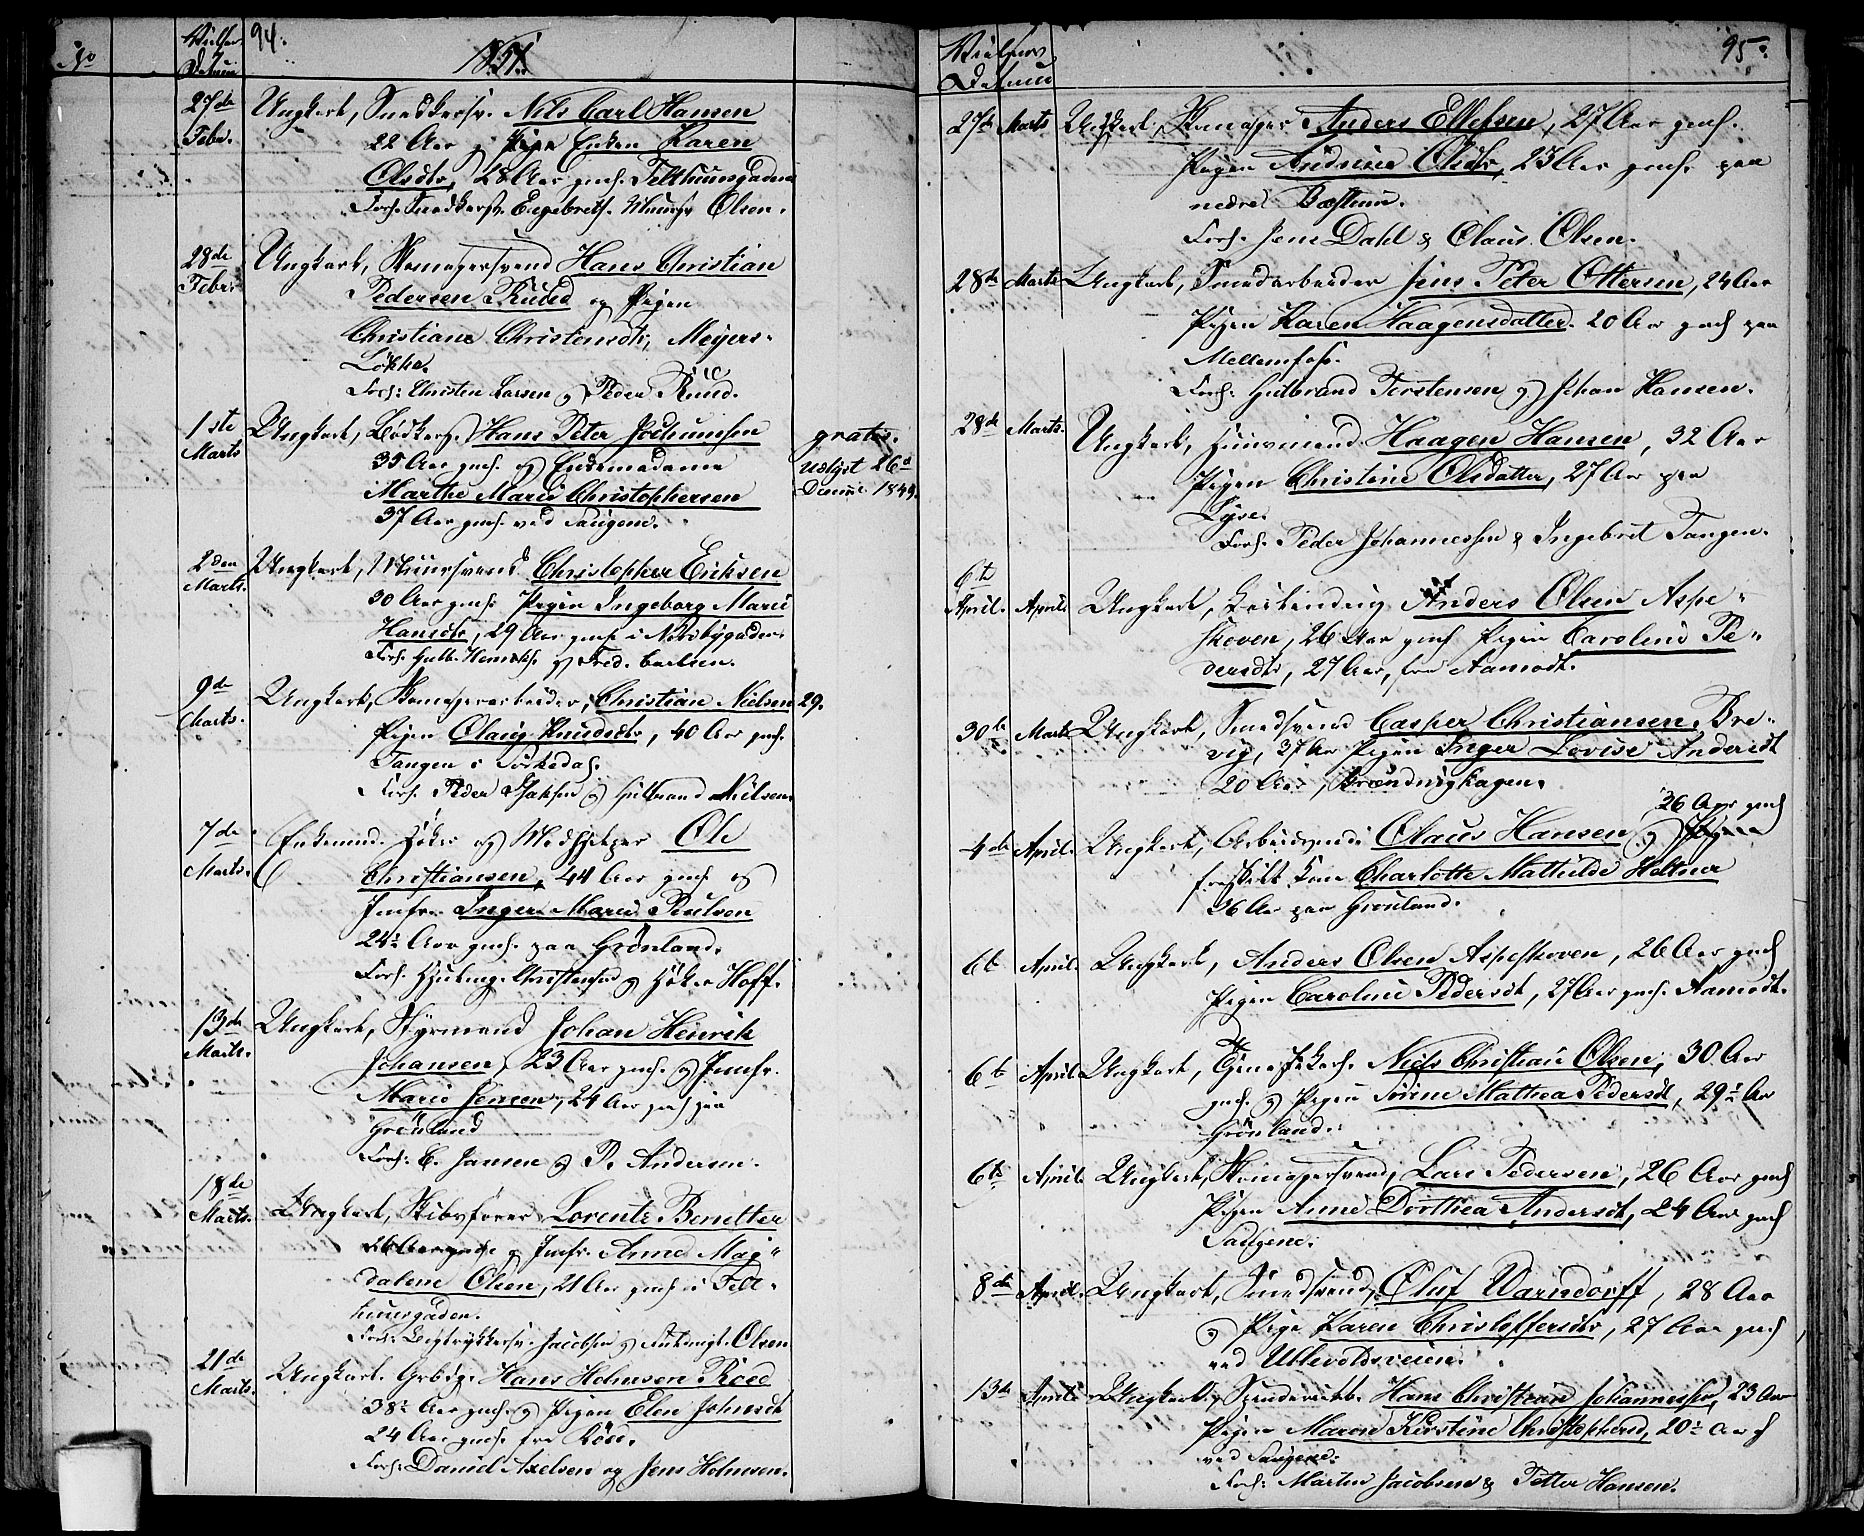 94.
1851.
Vielses
Datum
27de Febr. Ungkarl, Snedkersv. Nils Carl Hansen
22 Aar og Enken Karen
Olsdtr, 28 Aar gmh. Telthuusgaden
Forl. Snedkersv. Engebreth. Olsen.
28de Febr. Ungkarl, Skomagersvend Hans Christian
Pedersen Ruud og Pigen
Christiane Christensdtr, Meyers-
Løkke.
Forl: Christen Larsen og Peder Ruud.
1ste Marts Ungkarl, Bødkers. Hans Peter Jochumsen
35 Aar gmh. og Enkemadame
Marthe Marie Christophersen
37 Aar gmh. ved Saugene.
gratis.
udlyst 26
1849.
2den Marts. Ungkarl, Muursvend Christopher Eriksen
30 Aar gmh. Pigen Ingeborg Marie
Hansdtr, 29 Aar gmh i
Forl. Gulb. Henriks. og Fred. Carlsen.
9de Marts. Ungkarl, Skomagerarbeider, Christian Nielsen 29.
Pigen Olaug Knudsdtr, 40 Aar gmh.
Tangen i Sørkedal.
Forl. Peder Isaksen og Gulbrand Nielsen.
7de Marts. Enkemand. Høker og Ole
Christiansen, 44 Aar gmh og
Jomfr. Inger Marie Poulsen
24½ Aar gmh. paa Grønland.
Forl. Christensen og Høker Hoff.
13de Marts. Ungkarl, Styrmand Johan Heinrik
Johansen, 23 Aar gmh. og Jomfr.
Marie Jensen, 24 Aar gmh paa
Grønland
Forl: C. Jansen og P. Andersen.
18de Marts. Ungkarl, Skibsfører Lorentz Bernetter
26 Aar gmh og Jomfr. Anne Mag-
dalene Olsen, 21 Aar gmh i Telt-
huusgaden.
Forl: Bogtrykkersv. Jacobsen og Olsen
21de Marts. Ungkarl. Grbdg. Hans Holmsen Röed
38½ Aar gmh. og Pigen Elen Johnsdt
24 Aar gmh. fra Röse.
Forl: Daniel Axelsen og Jens Holmsen.
95.
Vielses
Datum
27de Marts Ungkarl, Skomager Anders Ellefsen, 27 Aar gmh.
Pigen Andrine Olsdtr, 23 Aar gmh. paa
nedre Bæstum.
Forl. Jens Dahl & Claus Olsen.
28de Marts Ungkarl, Smedarbeider Jens Peter Ottersen, 24 Aar
Pigen Karen Haagensdatter. 20 Aar gmh paa
Mellemfoss.
Forl: Gulbrand Torstensen og Johan Hansen.
28de Marts. Ungkarl, Huusmand Haagen Hansen, 32 Aar
Pigen Christine Olsdatter, 27 Aar paa
Lysee.
Forl. Peder Johannessen & Ingebret Tangen.
6te April. April. Ungkarl, Anders Olsen Aspe-
skoven, 26 Aar gmh Pigen Caroline Pe-
dersdtr, 27 Aar, fra Aamodt.
30te Marts Ungkarl, Smedsvend Casper Christiansen Bre-
vig, 37 Aar Pigen Inger Lovise Andersdt
20 Aar,
4de April. Ungkarl, Arbeidsmd. Claus Hansen 36 Aar gmh og Pigen
fraskilt Kone Charlotte Mathilde Heltner
36 Aar paa Grønland.
6te April. Ungkarl, Anders Olsen Aspeskoven, 26 Aar gmh
Pigen Caroline Pedersdt, 27 Aar gmh. Aamodt.
6te April. Ungkarl, Niels Christian Olsen, 30 Aar
gmh. og Pigen Sirine Mathea Pedersdt, 29½ Aar
Grønland.
6te April Ungkarl, Skomagersvend, Lars Pedersen, 26 Aar gmh
Pigen Anne Dorthea Andersdt, 24 Aar gmh
Saugene.
8de April. Ungkarl, Smedsvend, Oluf Warnsdorff, 28 Aar
og Pige Karen Christoffersdtr, 27 Aar gmh
ved Ullevoldsveien.
13de April Ungkarl, Hans Christian Johannessen, 23 Aar
Pigen Maren Kirstine Christophersd, 20½ Aar
ved Saugene.
Forl: Morten Jacobsen & Petter Hansen.